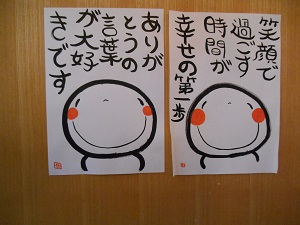 笑顔で
過ごす
時間が
幸せの第一歩
ありが
とうの
言葉
が大好
きです